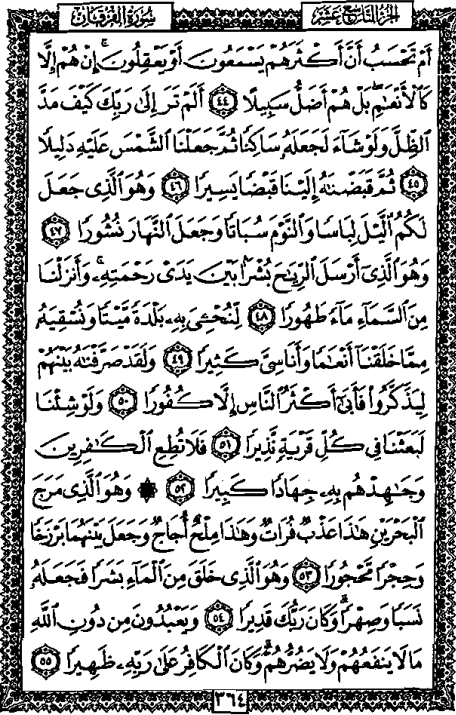 الجزء التاسع عشر
سُورَةُ الفُرْقَان
أَمْ تَحْسَبُ أَنَّ أَكْثَرَهُمْ يَسْمَعُونَ أَوْ يَعْقِلُونَۚ إِنْ هُمْ إِلَّا
كَٱلْأَنْعَٰمِۖ بَلْ هُمْ أَضَلُّ سَبِيلًا ٤٤ أَلَمْ تَرَ إِلَىٰ رَبِّكَ كَيْفَ مَدَّ
ٱلظِّلَّ وَلَوْ شَآءَ لَجَعَلَهُۥ سَاكِنًا ثُمَّ جَعَلْنَا ٱلشَّمْسَ عَلَيْهِ دَلِيلًا
٤٥ ثُمَّ قَبَضْنَٰهُ إِلَيْنَا قَبْضًا يَسِيرًا ٤٦ وَهُوَ ٱلَّذِى جَعَلَ
لَكُمُ ٱلَّيْلَ لِبَاسًا وَٱلنَّوْمَ سُبَاتًا وَجَعَلَ ٱلنَّهَارَ نُشُورًا ٤٧
وَهُوَ ٱلَّذِىٓ أَرْسَلَ ٱلرِّيَٰحَ بُشْرًۢا بَيْنَ يَدَىْ رَحْمَتِهِۦۚ وَأَنزَلْنَا
مِنَ ٱلسَّمَآءِ مَآءً طَهُورًا ٤٨ لِّنُحْـِۧىَ بِهِۦ بَلْدَةً مَّيْتًا وَنُسْقِيَهُۥ
مِمَّا خَلَقْنَآ أَنْعَٰمًا وَأَنَاسِىَّ كَثِيرًا ٤٩ وَلَقَدْ صَرَّفْنَٰهُ بَيْنَهُمْ
لِيَذَّكَّرُوا۟ فَأَبَىٰٓ أَكْثَرُ ٱلنَّاسِ إِلَّا كُفُورًا ٥٠ وَلَوْ شِئْنَا
لَبَعَثْنَا فِى كُلِّ قَرْيَةٍ نَّذِيرًا ٥١ فَلَا تُطِعِ ٱلْكَٰفِرِينَ
وَجَٰهِدْهُم بِهِۦ جِهَادًا كَبِيرًا ٥٢ ۞ وَهُوَ ٱلَّذِى مَرَجَ
ٱلْبَحْرَيْنِ هَٰذَا عَذْبٌ فُرَاتٌ وَهَٰذَا مِلْحٌ أُجَاجٌ وَجَعَلَ بَيْنَهُمَا بَرْزَخًا
وَحِجْرًا مَّحْجُورًا ٥٣ وَهُوَ ٱلَّذِى خَلَقَ مِنَ ٱلْمَآءِ بَشَرًا فَجَعَلَهُۥ
نَسَبًا وَصِهْرًاۗ وَكَانَ رَبُّكَ قَدِيرًا ٥٤ وَيَعْبُدُونَ مِن دُونِ ٱللَّهِ
مَا لَا يَنفَعُهُمْ وَلَا يَضُرُّهُمْۗ وَكَانَ ٱلْكَافِرُ عَلَىٰ رَبِّهِۦ ظَهِيرًا ٥٥
٣٦٤